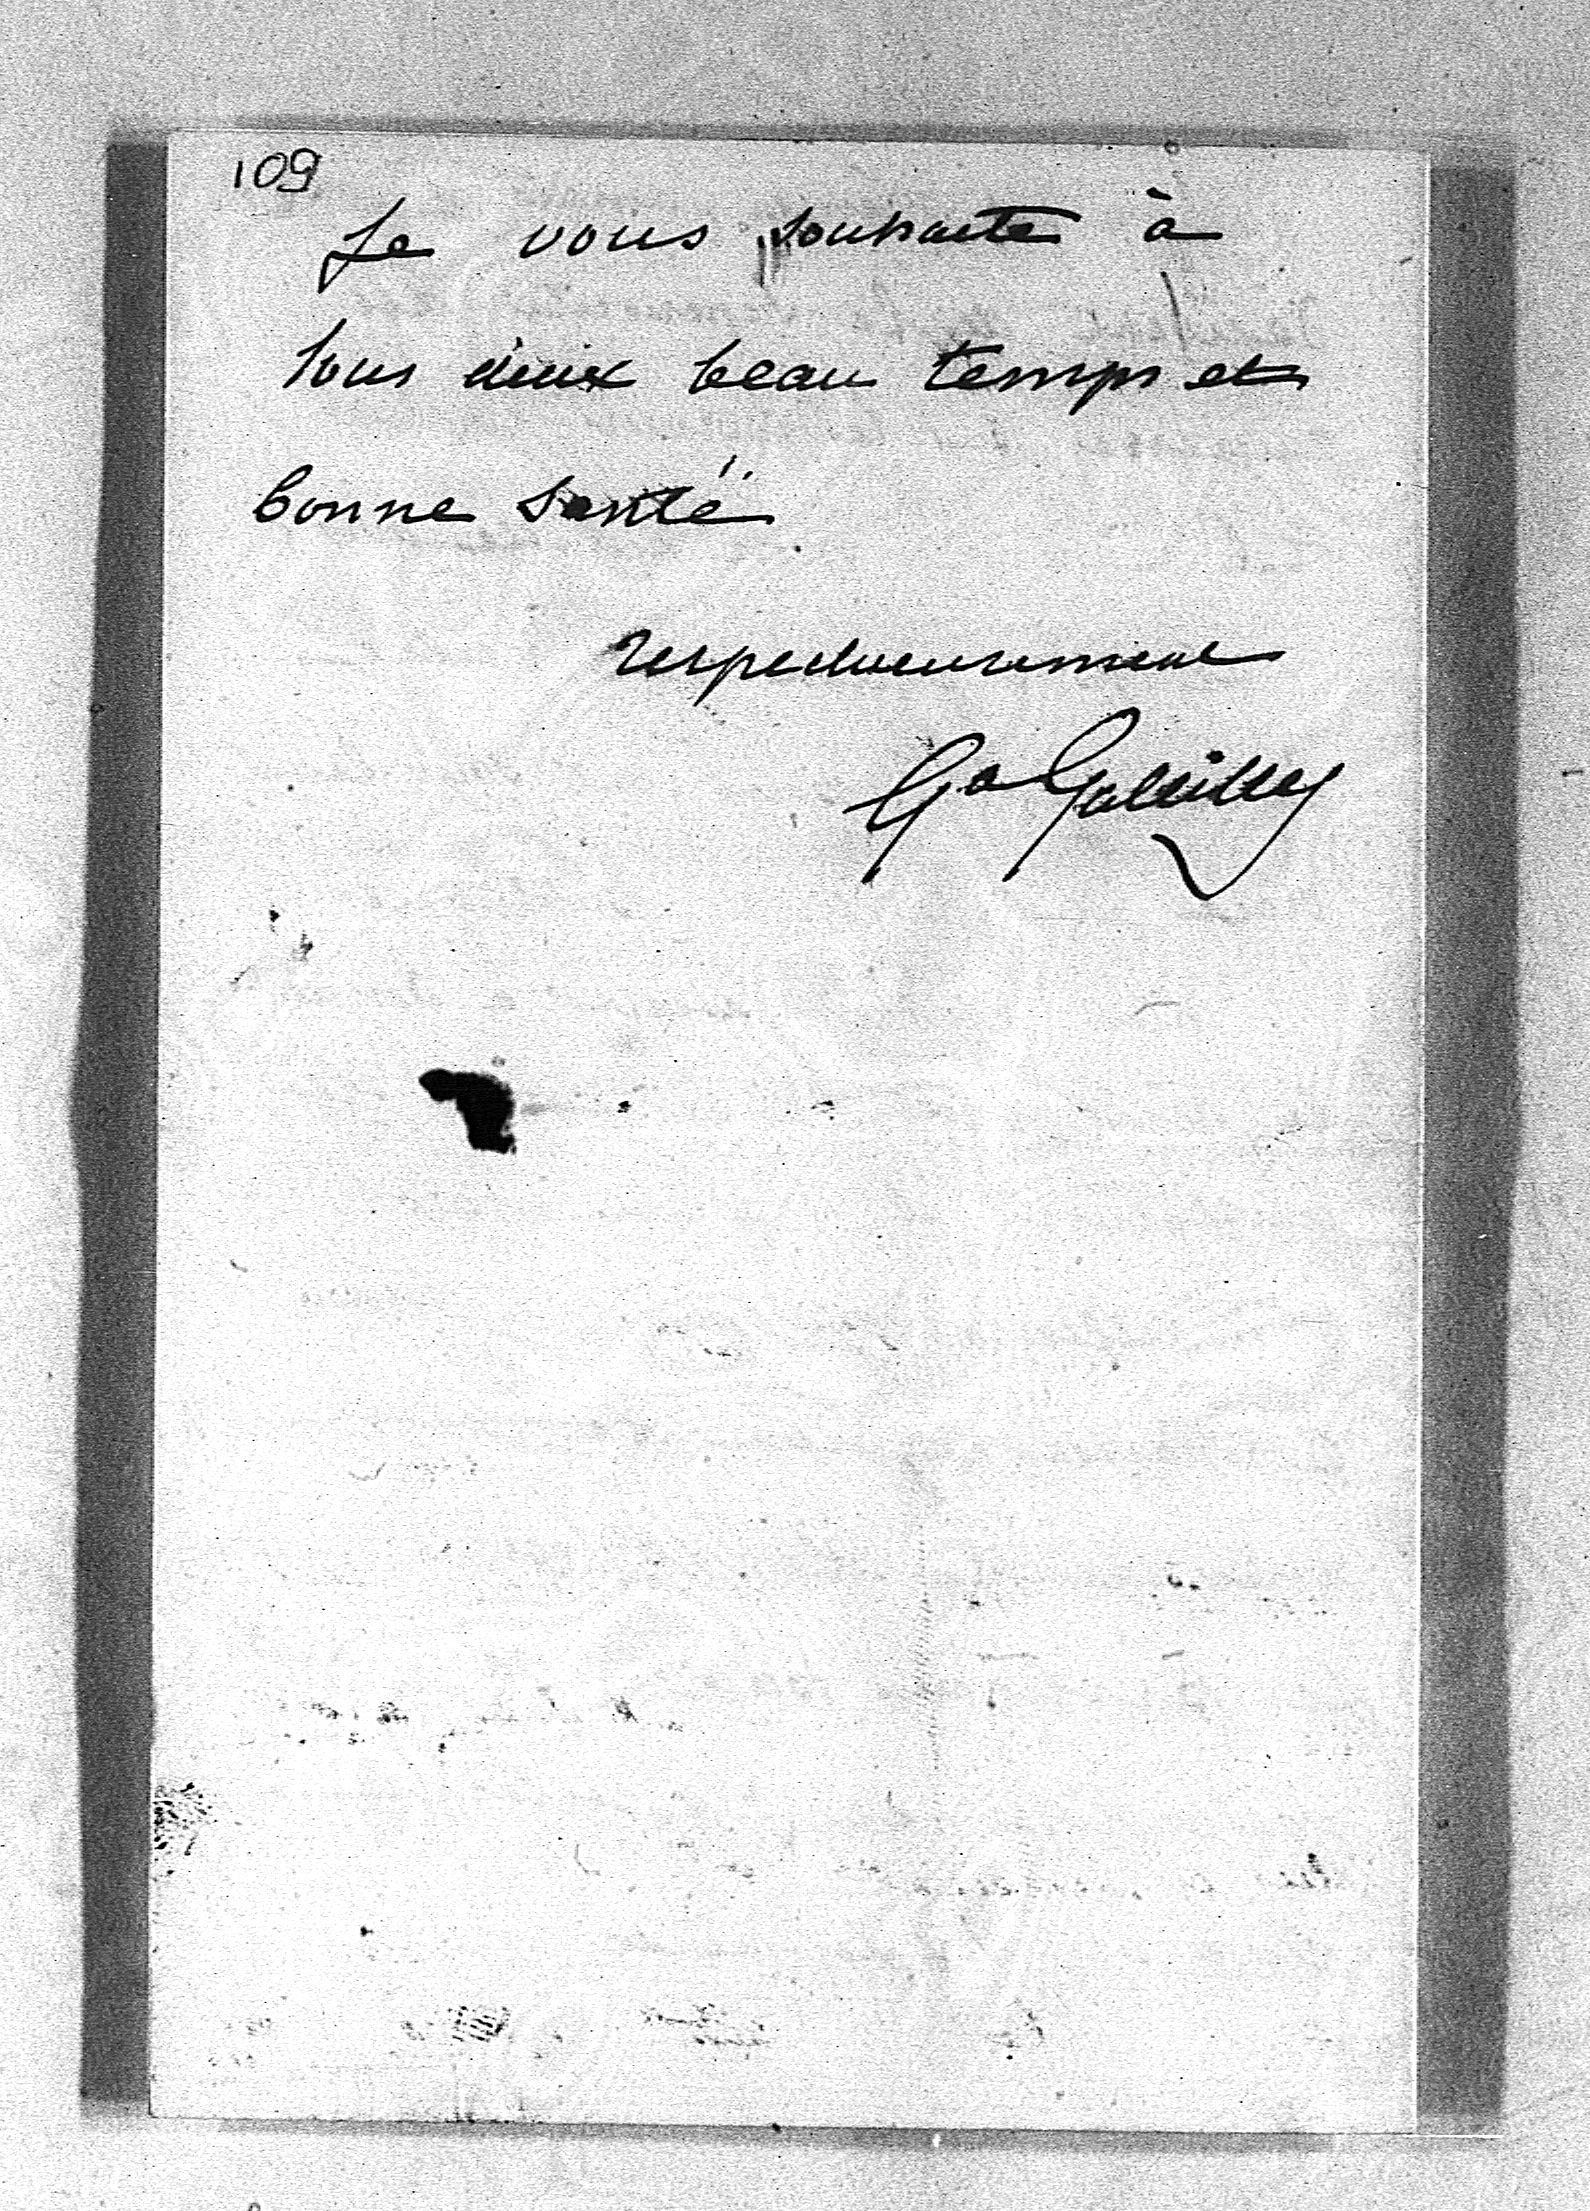 109
Je vous souhaite à
tous deux beau temps et
bonne santé
respectueusement